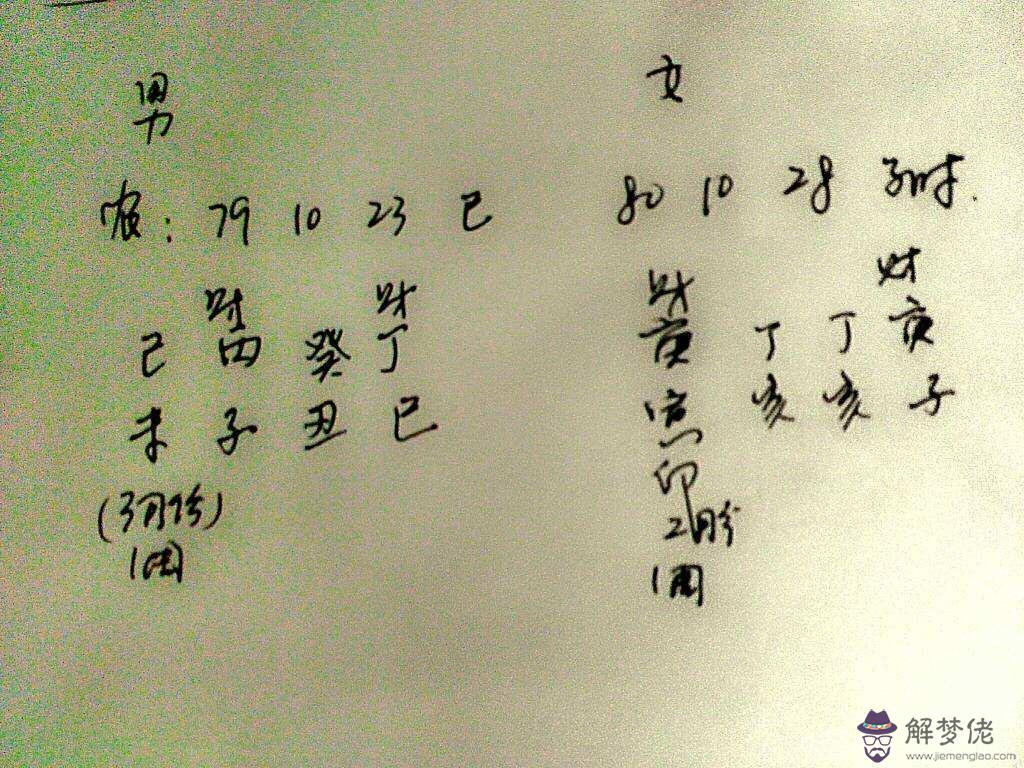 男 女
农: 79 10 23 巳 80 10 28 子时.
财 财 财 财
己 丙 癸 丁 庚 丁 丁 庚
未 子 丑 巳 申 亥 亥 子
印
(3月份) 2月份
1周 1周
解梦佬
www.jiemenglao.com